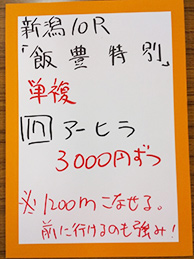 新潟10R
「飯豊特別」
単複
四 アーヒラ
3000円ずつ
※1200mこなせる。
前に行けるのも強み!